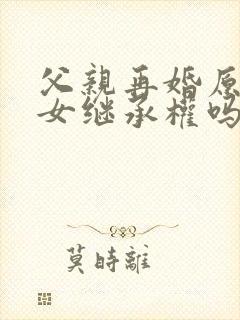 父親再婚原
女继承權吗
莫時離